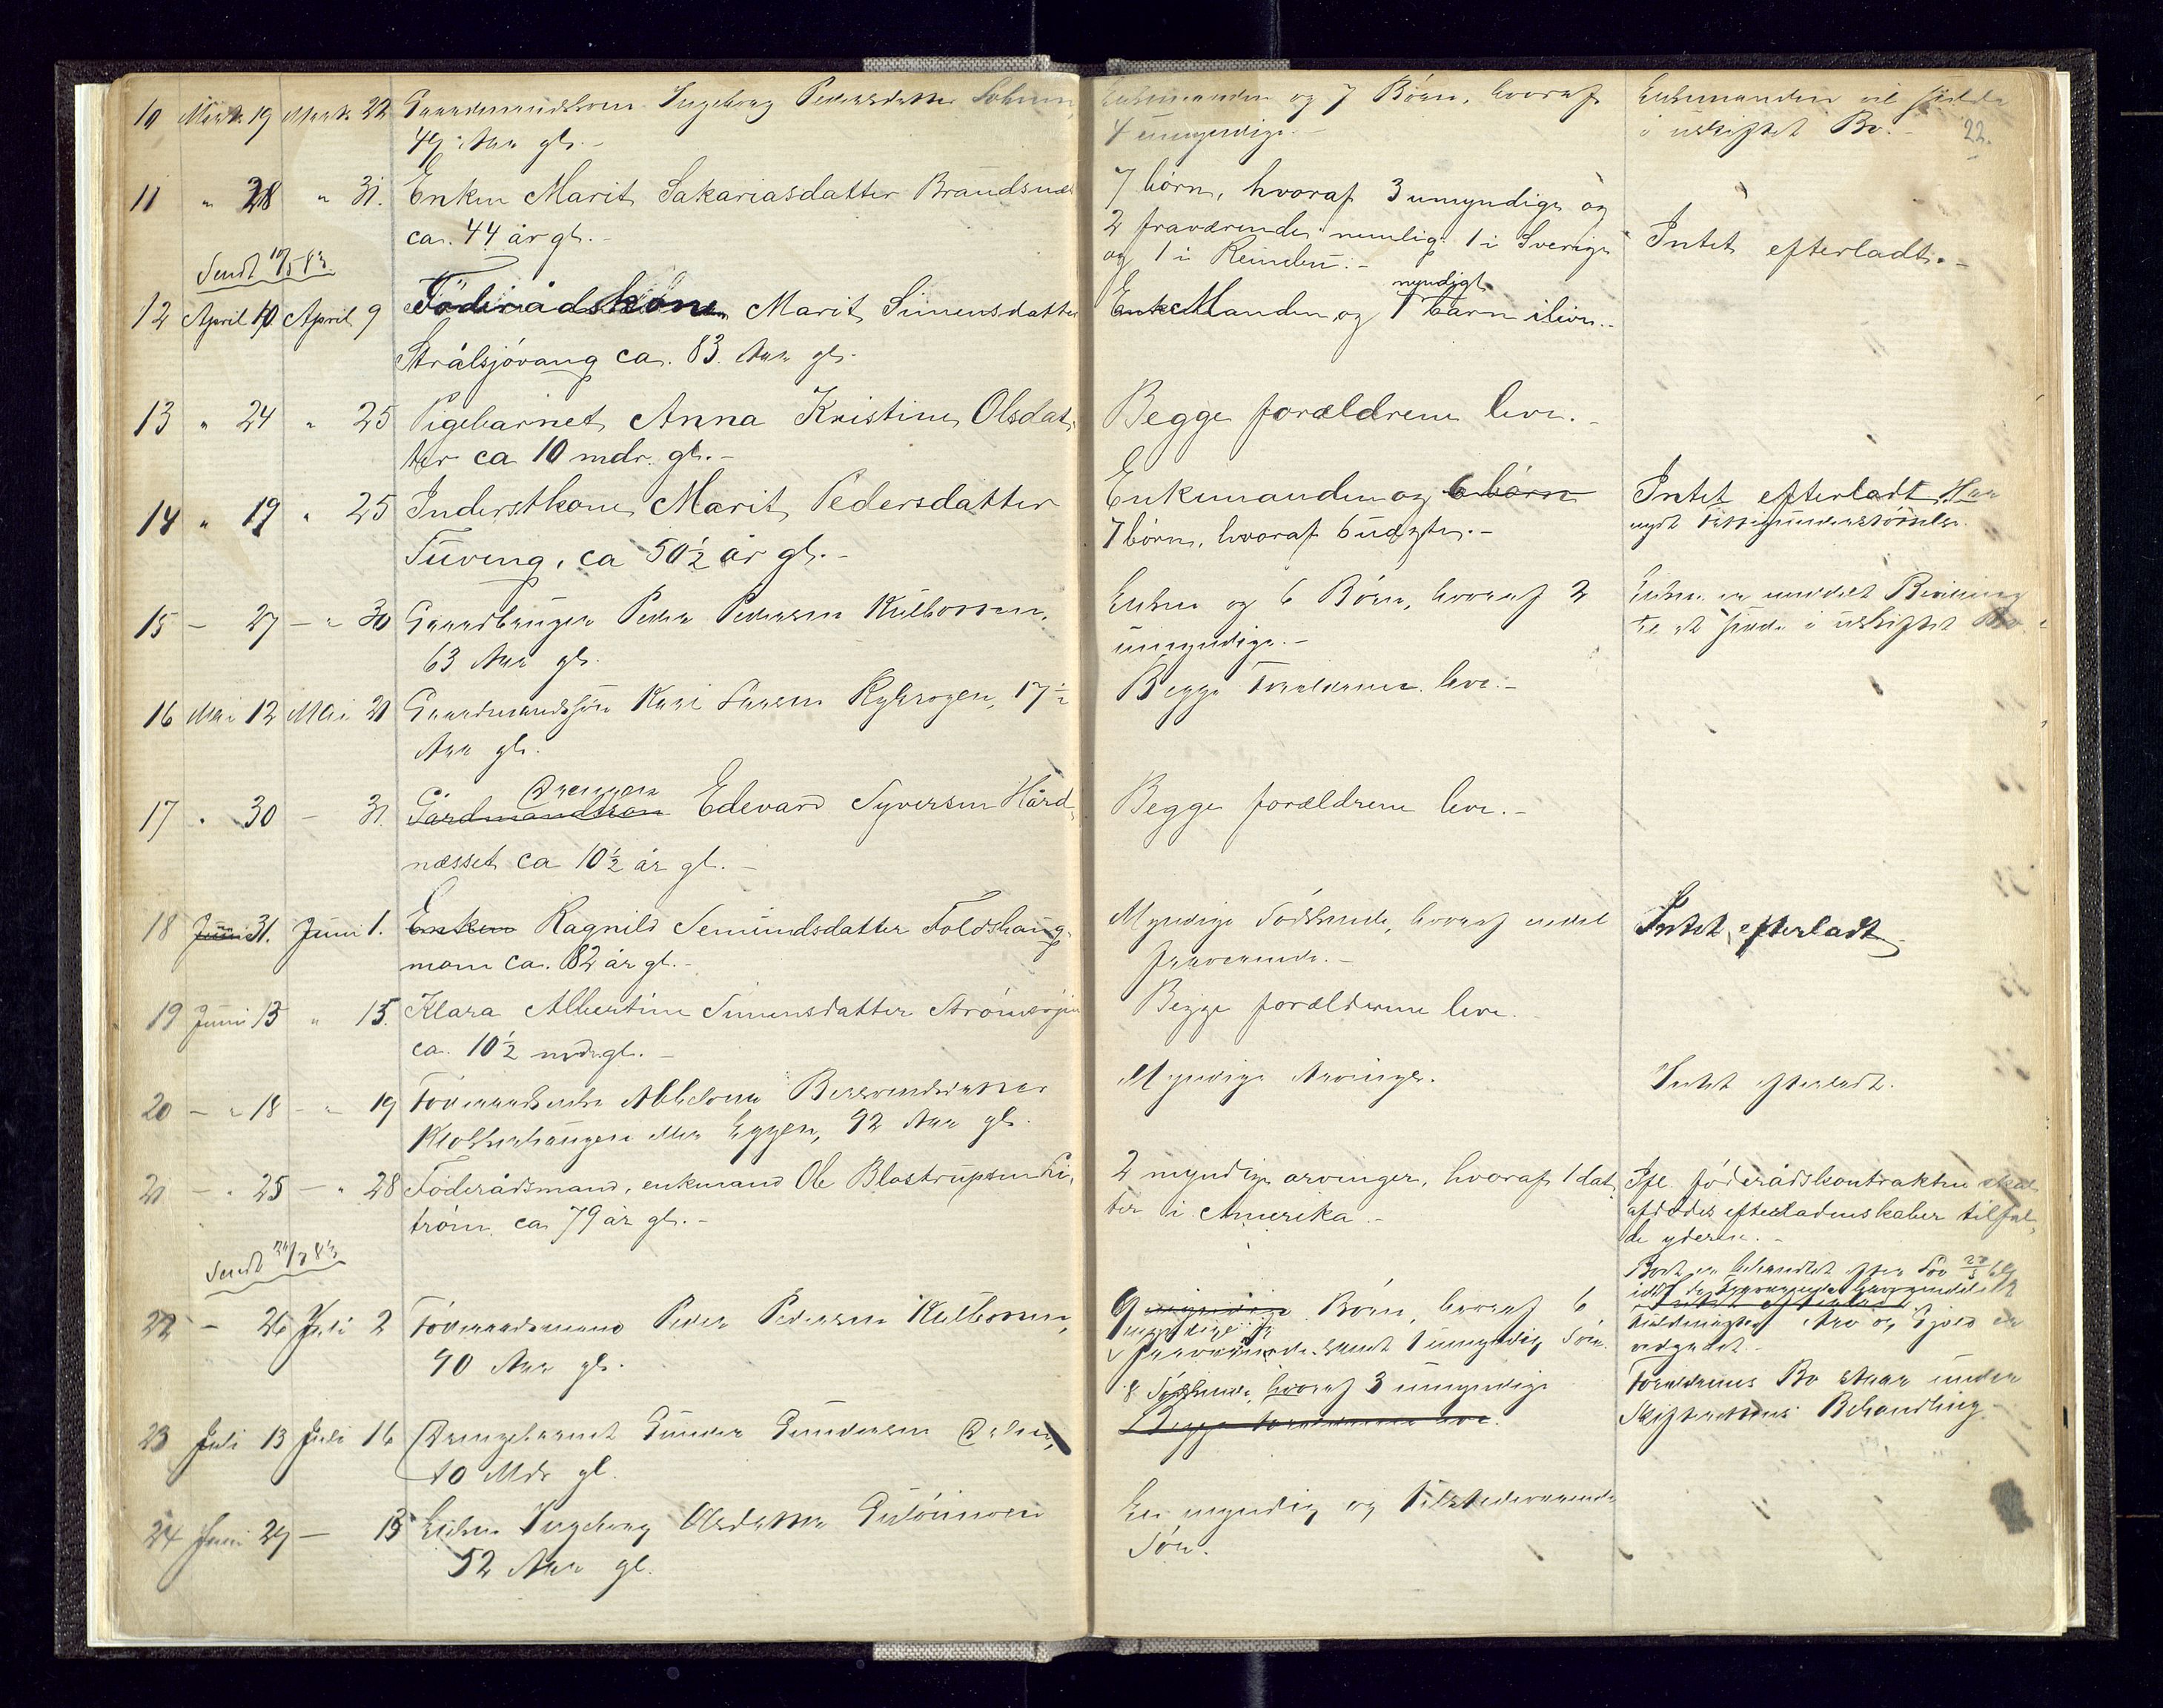 10 Marts 19 Marts 22 Gaardmandskone Ingeborg Pedersdatter
49 Aar gl. -
Enkemanden og 7 Børn, hvoraf
4 umyndige. -
Enkemanden vil sidde
i uskiftet Bo. - 22.
11 " 28 " 31. Enken Marit Sakariasdatter Brandsnæs
ca. 44 år gl. -
7 børn, hvoraf 3 umyndige og
2 fraværende nemlig 1 i Sverige
og 1 i
Intet efterladt. -
Sendt 10/5 83.
12 April 10 April 9 Föderådskone Marit Simensdatter
Strålsjövang ca. 83 Aar gl. -
myndigt
Enke Manden og 1 barn ilive. -
13 " 24 " 25 Pigebarnet Anna Kristine Olsdat-
ter ca 10 mdr. gl. -
Begge forældrene leve. -
14 " 19 " 25 Inderstkone Marit Pedersdatter
Tuveng, ca 50½ år gl. -
Enkemanden og 6 børn
7 børn, hvoraf 6 uægte. -
Intet efterladt Har
nydt fattigunderstøttelse.
15 - 27 - " 30 Gaardbruger Peder Pedersen Kulbotten,
63 Aar gl.
Enken og 6 Børn, hvoraf 2
umyndige. -
Enken er meddelt Bevilling
til at sidde i uskiftet Bo.
16 Mai 12 Mai 21 Gaardmandssøn Kari Larsen 17½
Aar gl.
Begge Forældrene leve. -
17 " 30 - 31. Drengen
Gårdmandsson Edevard Syversen Hård-
næsset ca 10½ år gl. -
Begge forældrene leve. -
18 Juni 31. Juni 1. Enken Ragnild Semundsdatter Foldshaug-
moen ca. 82 år gl. -
Myndige Sødskende, hvoraf endel
fraværende. -
Intet efterladt
19 Juni 13 " 15. Klara Albertine Simensdatter Strömsöjen
ca. 10½ mdr gl. -
Begge forældrene leve.
20 - " 18 - " 19 Föderaadsenke Abbelone
Klokkerhaugen eller Eggen, 92 Aar gl.
Myndige Arvinger.
Intet efterladt.
21 - " 25 - " 28 Föderådsmand, enkmand Ole Blostrupsen Li-
ström ca 79 år gl. -
2 myndige arvinger, hvoraf 1 dat-
ter i Amerika. -
Ifl. föderådskontrakten skal
afdødes efterladenskaber tilfal-
de yderen. -
Sendt 31/7 83
22 - 26 Juli 2 Föderaadsmand Peder Pedersen Kulbotten,
90 Aar gl.
9 umyndige Børn, hvoraf 6
myndige
fraværende samt 1 umyndig Søn.
Boet er behandlet efter Lov
Intet efterladt
Arv og Gjæld er
vedgaaet. -
23 Juli 13 Juli 16 Drengebarnet Gunder Gundersen
10 Mdr gl.
8 Sødskende, hvoraf 3 umyndige
Begge Forældrene leve.
Forældrenes Bo staar under
Skifterettens Behandling.
24 Juni 29 - 15 Enken Ingeborg Olsdatter
52 Aar gl.
En myndig og tilstedeværende
Søn.